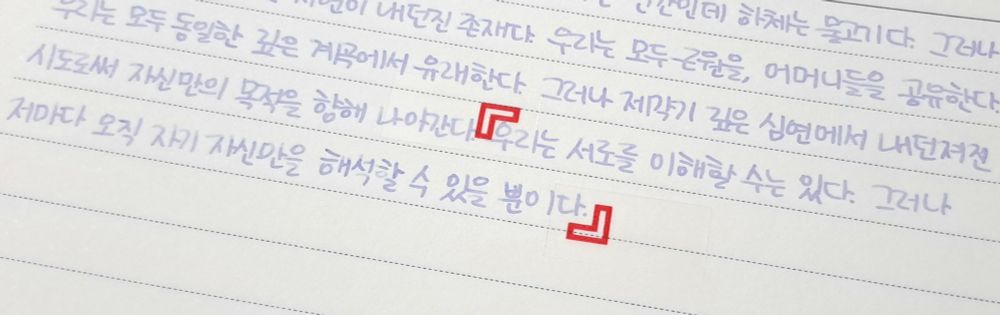 내던진 존재다. 우리는 모두 근원을, 어머니들을 공유한다
인데 하체는 물고기다. 그러나
우리는 모두 동일한 깊은 계곡에서 유래한다. 그러나 제각기 깊은 심연에서 내던져진
시도로써 자신만의 목적을 향해 나아간다. 『우리는 서로를 이해할 수는 있다. 그러나
저마다 오직 자기 자신만을 해석할 수 있을 뿐이다.』